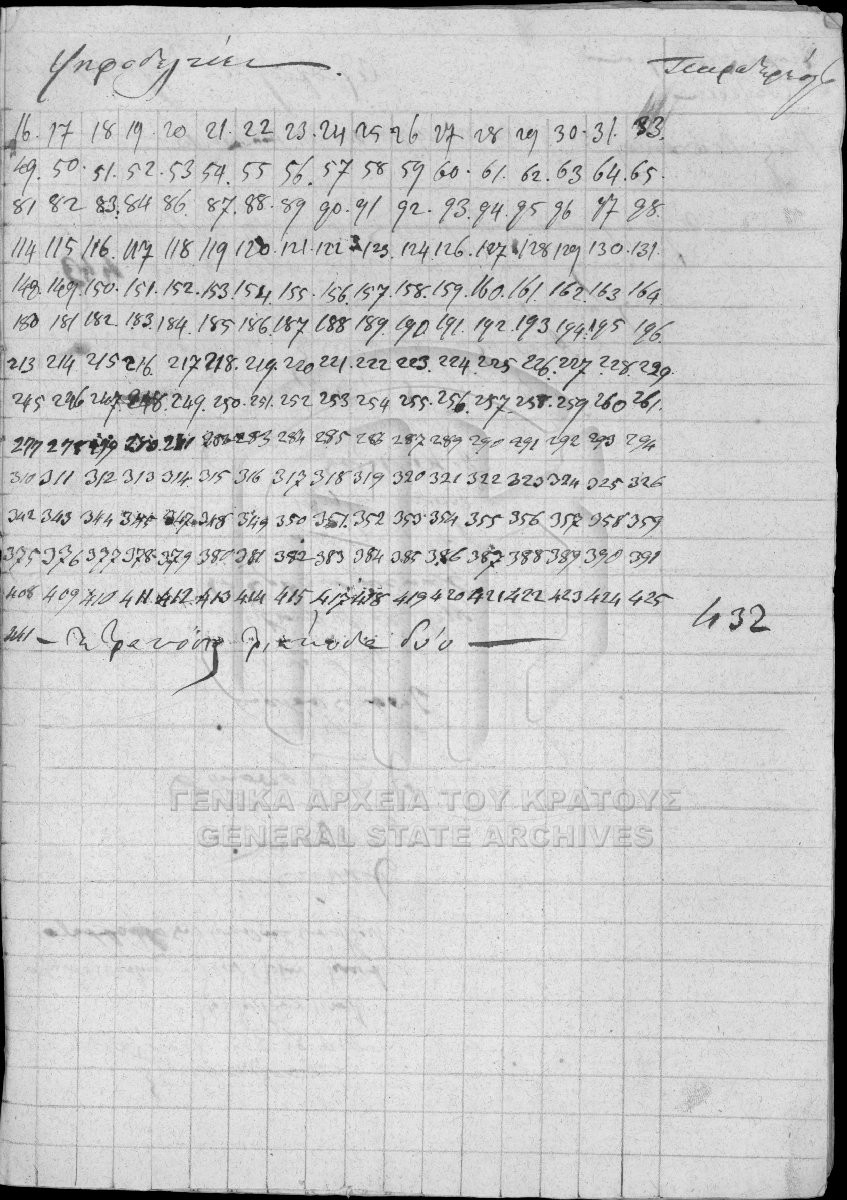 Ψηφοδελτίων
16. 17 18 19. 20 21. 22 23. 24 25 26 27. 28 29 30. 31. 33.
49. 50. 51. 52. 53 54. 55 56. 57 58 59 60. 61. 62. 63 64. 65.
81 82 83. 84 86. 87. 88. 89 90. 91 92. 93. 94. 95 96 97 98.
114 115 116. 117 118 119 120. 121. 122 123. 124. 126. 127 128 129 130. 131.
148. 149. 150. 151. 152. 153. 154. 155. 156. 157. 158. 159. 160. 161. 162. 163 164
180 181 182. 183. 184. 185 186. 187 188 189. 190. 191. 192. 193 194. 195 196.
213 214 215 216. 217 218. 219. 220 221. 222 223. 224. 225 226. 227. 228 229.
245 246 247 248. 249. 250. 251. 252 253 254 255. 256. 257. 258. 259 260 261.
277 278 279 280. 281 282 283 284 285 286 287 289 290 291 292 293 294
310 311 312 313 314 315 316 317 318 319 320 321 322 323 324 325 326
342 343 344 345 347. 348 349 350 351. 352 353. 354 355 356 357 358 359
375 376 377 378. 379 380 381 382 383 384 385 386 387 388 389 390 391
408 409 410 411 412 413 414 415 417 418 419 420 421 422 423 424 425
432
441 — τριάκοντα δύο —
ΓΕΝΙΚΑ ΑΡΧΕΙΑ ΤΟΥ ΚΡΑΤΟΥΣ
GENERAL STATE ARCHIVES